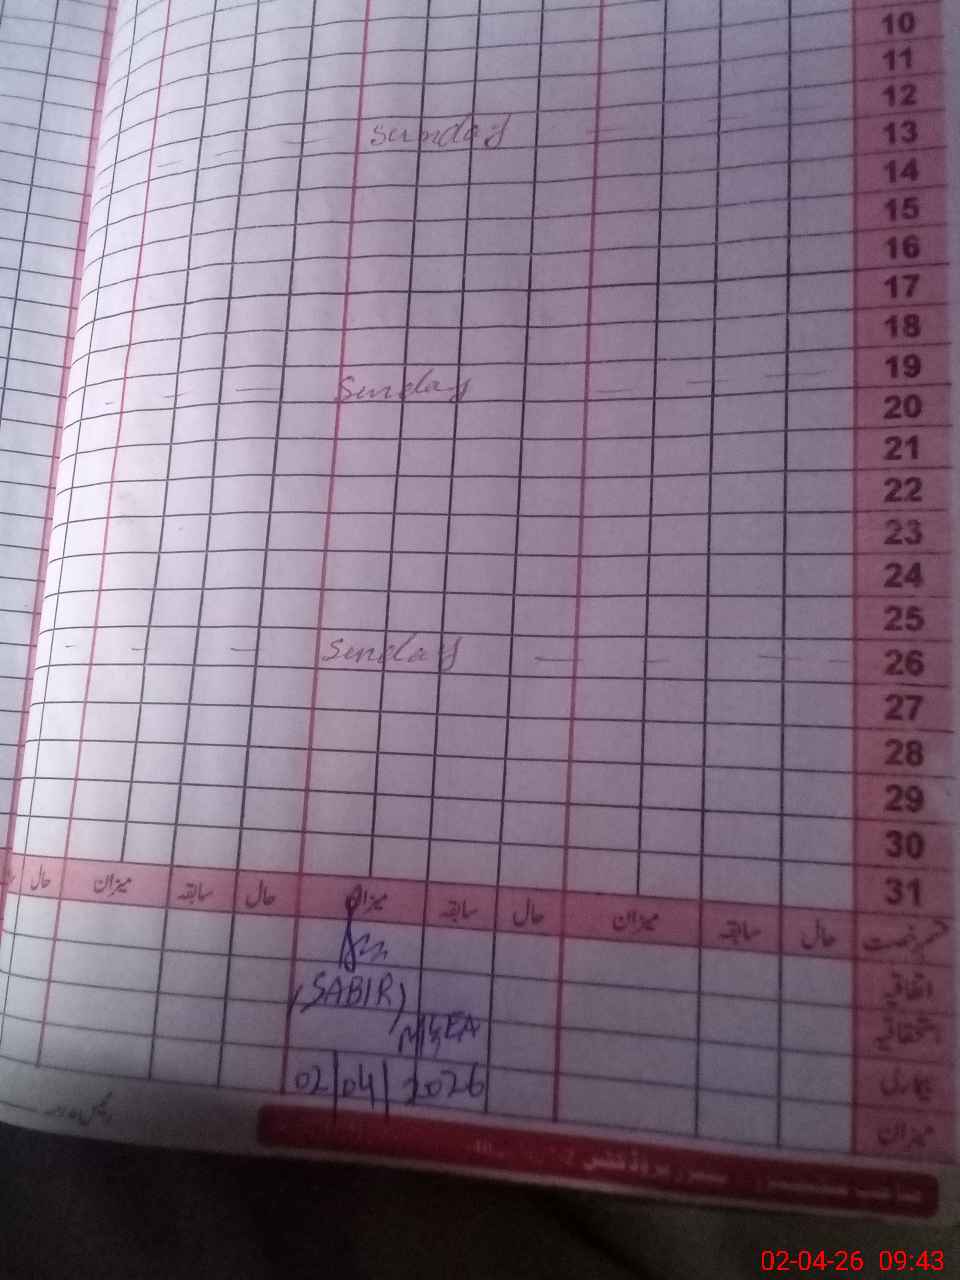 10
11
12
Sunday 13
14
15
16
17
18
19
Sunday 20
21
22
23
24
25
Sunday 26
27
28
29
30
31
حال سابقہ میزان حال سابقہ میزان حال سابقہ میزان حال
اتفاقیہ
استحقاقیہ
بیماری
میزان
(SABIR)
02/04/2026
02-04-26 09:43